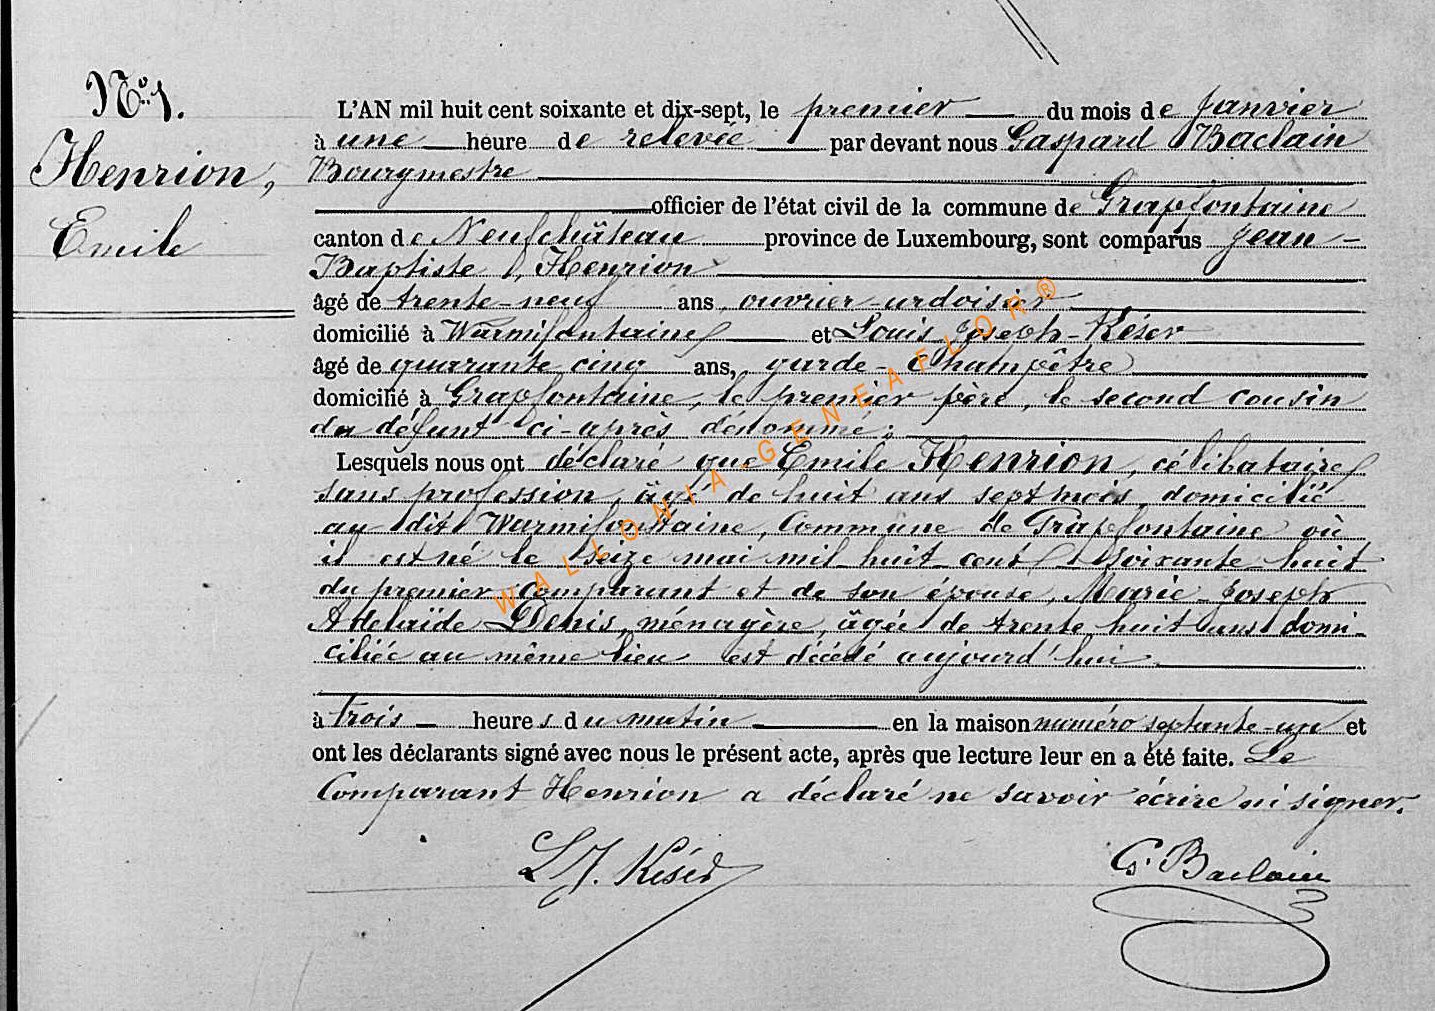 N° 1.
Henrion,
Emile
L'AN mil huit cent soixante et dix-sept, le premier du mois de Janvier
à une heure de relevée par devant nous Gaspard Baclain
Bourgmestre
officier de l'état civil de la commune de Grapfontaine
canton de Neufchâteau province de Luxembourg, sont comparus Jean-
Baptiste Henrion
âgé de trente-neuf ans, ouvrier-ardoisier
domicilié à Warmifontaine et Louis Joseph-Késer
âgé de quarante cinq ans, garde-Champêtre
domicilié à Grapfontaine, le premier père, le second cousin
du défunt ci-après dénommé;
Lesquels nous ont déclaré que Emile Henrion, célibataire
sans profession, âgé de huit ans sept mois, domicilié
au dit Warmifontaine, Commune de Grapfontaine où
il est né le seize mai mil huit cent soixante huit
du premier comparant et de son épouse, Marie-Joseph
Adelaïde Denis, ménagère, âgée de trente huit ans domi-
ciliée au même lieu est décédé aujourd'hui
à trois heures du matin en la maison numéro septante-un et
ont les déclarants signé avec nous le présent acte, après que lecture leur en a été faite. Le
Comparant Henrion a déclaré ne savoir écrire ni signer.
L J. Késer
G. Baclain
WALLONIA-GENEAFLOR®